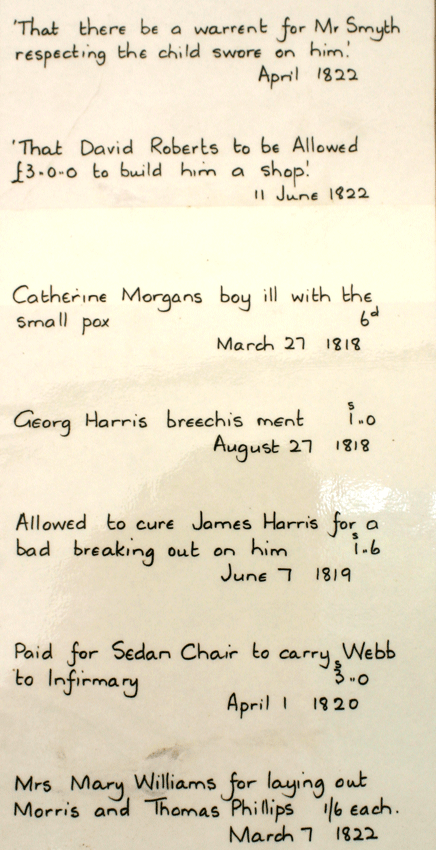 'That there be a warrent for Mr Smyth
respecting the child swore on him.'
April 1822
'That David Roberts to be Allowed
£3.0.0 to build him a shop.'
11 June 1822
Catherine Morgans boy ill with the
small pox 6d
March 27 1818
Georg Harris breechis ment 1s..0
August 27 1818
Allowed to cure James Harris for a
bad breaking out on him 1s..6
June 7 1819
Paid for Sedan Chair to carry Webb
to Infirmary 3s..0
April 1 1820
Mrs Mary Williams for laying out
Morris and Thomas Phillips 1/6 each.
March 7 1822